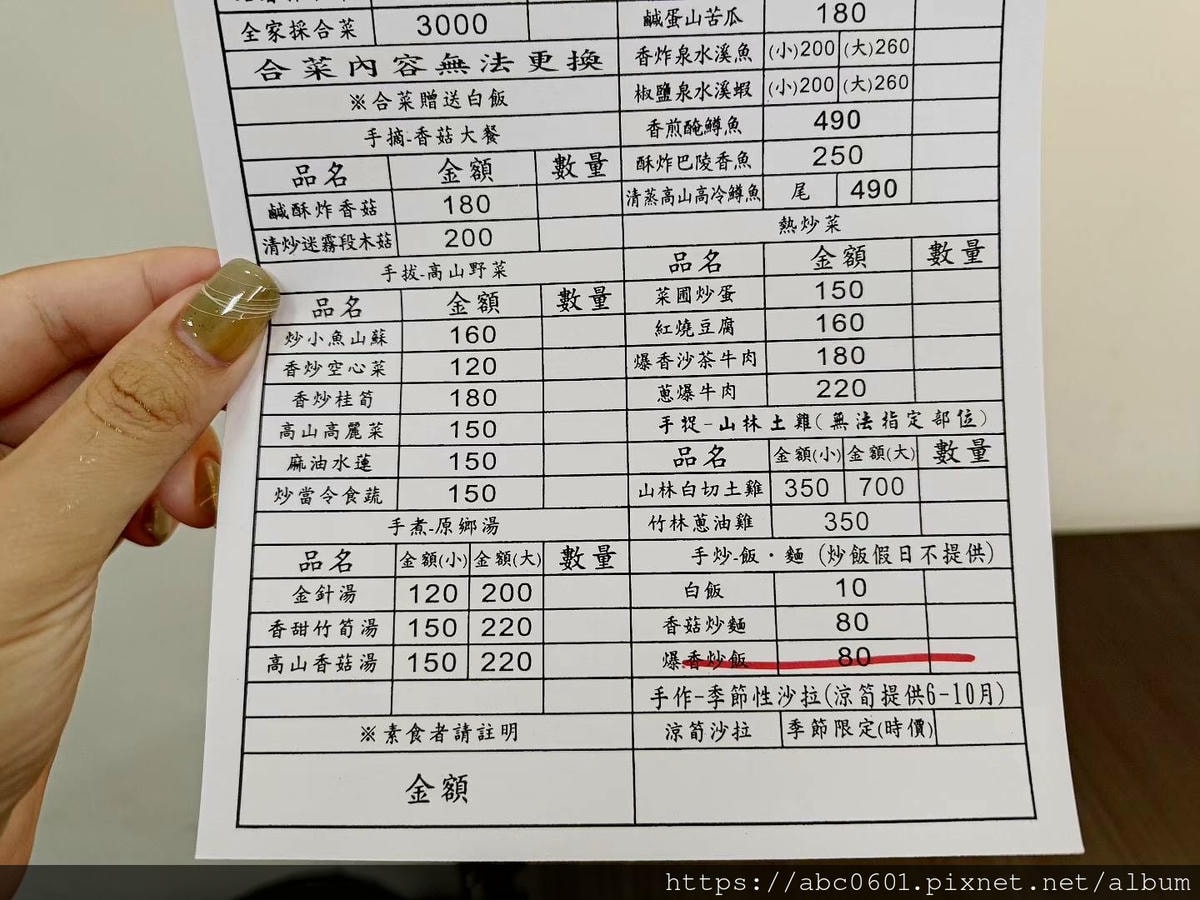 全家採合菜 3000
合菜內容無法更換
※合菜贈送白飯
手摘-香菇大餐
品名 金額 數量
鹹酥炸香菇 180
清炒迷霧段木菇 200
手拔-高山野菜
品名 金額 數量
炒小魚山蘇 160
香炒空心菜 120
香炒桂筍 180
高山高麗菜 150
麻油水蓮 150
炒當令食蔬 150
手煮-原鄉湯
品名 金額(小) 金額(大) 數量
金針湯 120 200
香甜竹筍湯 150 220
高山香菇湯 150 220
※素食者請註明
金額
鹹蛋山苦瓜 180
香炸泉水溪魚 (小)200 (大)260
椒鹽泉水溪蝦 (小)200 (大)260
香煎醃鱒魚 490
酥炸巴陵香魚 250
清蒸高山高冷鱒魚 尾 490
熱炒菜
品名 金額 數量
菜圃炒蛋 150
紅燒豆腐 160
爆香沙茶牛肉 180
蔥爆牛肉 220
手捉-山林土雞(無法指定部位)
品名 金額(小) 金額(大) 數量
山林白切土雞 350 700
竹林蔥油雞 350
手炒-飯·麵 (炒飯假日不提供)
白飯 10
香菇炒麵 80
爆香炒飯 80
手作-季節性沙拉(涼筍提供6-10月)
涼筍沙拉 季節限定(時價)
https://abc0601.pixnet.net/album